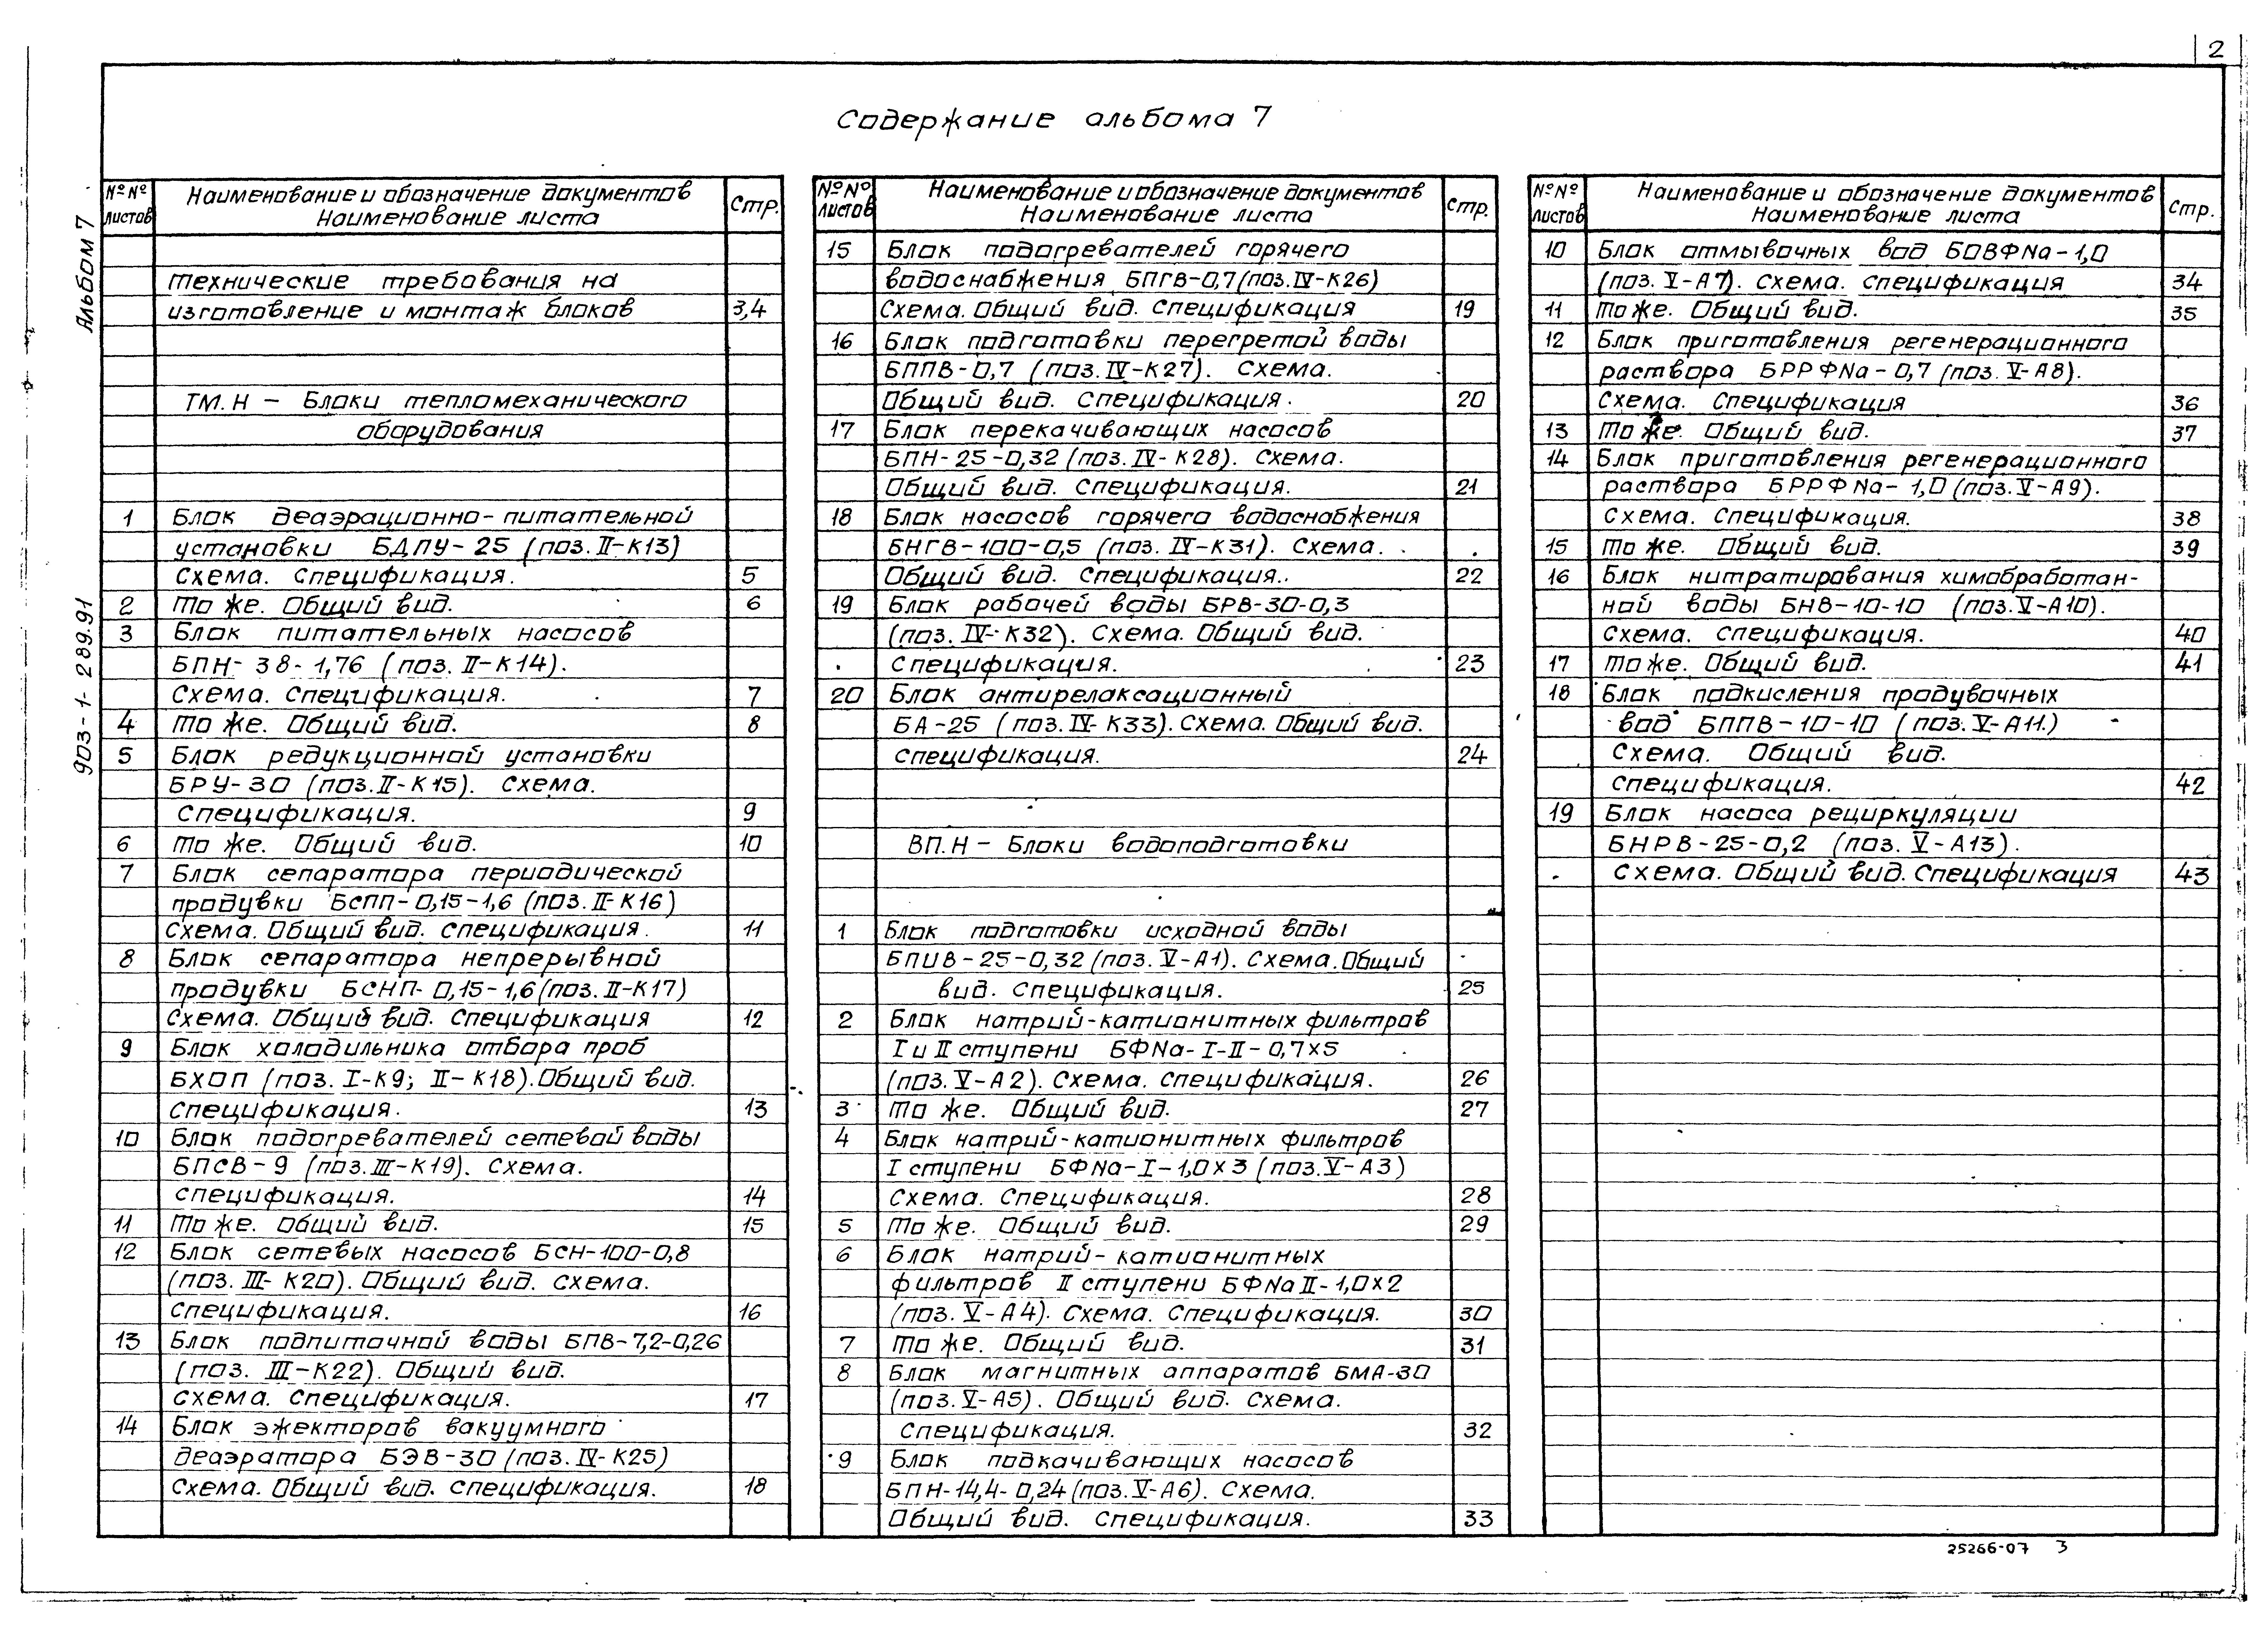 2
Содержание альбома 7
Альбом 7
903-1-289.91
№№ листов
Наименование и обозначение документов
Наименование листа
Стр.
Технические требования на
изготовление и монтаж блоков 3,4
ТМ.Н – Блоки тепломеханического
оборудования
1 Блок деаэрационно-питательной
установки БДПУ-25 (поз. II-К13)
Схема. Спецификация. 5
2 То же. Общий вид. 6
3 Блок питательных насосов
БПН-38-1,76 (поз. II-К14).
Схема. Спецификация. 7
4 То же. Общий вид. 8
5 Блок редукционной установки
БРУ-30 (поз. II-К15). Схема.
Спецификация. 9
6 То же. Общий вид. 10
7 Блок сепаратора периодической
продувки БСПП-0,15-1,6 (поз. II-К16)
Схема. Общий вид. Спецификация. 11
8 Блок сепаратора непрерывной
продувки БСНП-0,15-1,6 (поз. II-К17)
Схема. Общий вид. Спецификация 12
9 Блок холодильника отбора проб
БХОП (поз. I-К9; II-К18). Общий вид.
Спецификация. 13
10 Блок подогревателей сетевой воды
БПСВ-9 (поз. III-К19). Схема.
Спецификация. 14
11 То же. Общий вид. 15
12 Блок сетевых насосов БСН-100-0,8
(поз. III-К20). Общий вид. Схема.
Спецификация. 16
13 Блок подпиточной воды БПВ-7,2-0,26
(поз. III-К22). Общий вид.
Схема. Спецификация. 17
14 Блок эжекторов вакуумного
деаэратора БЭВ-30 (поз. IV-К25)
Схема. Общий вид. Спецификация. 18
№№ листов
Наименование и обозначение документов
Наименование листа
Стр.
15 Блок подогревателей горячего
водоснабжения БПГВ-0,7 (поз. IV-К26)
Схема. Общий вид. Спецификация 19
16 Блок подготовки перегретой воды
БППВ-0,7 (поз. IV-К27). Схема.
Общий вид. Спецификация. 20
17 Блок перекачивающих насосов
БПН-25-0,32 (поз. IV-К28). Схема.
Общий вид. Спецификация. 21
18 Блок насосов горячего водоснабжения
БНГВ-100-0,5 (поз. IV-К31). Схема.
Общий вид. Спецификация. 22
19 Блок рабочей воды БРВ-30-0,3
(поз. IV-К32). Схема. Общий вид.
Спецификация. 23
20 Блок антирелаксационный
БА-25 (поз. IV-К33). Схема. Общий вид.
Спецификация. 24
ВП.Н – Блоки водоподготовки
1 Блок подготовки исходной воды
БПИВ-25-0,32 (поз. V-А1). Схема. Общий
вид. Спецификация. 25
2 Блок натрий-катионитных фильтров
I и II ступени БФNa-I-II-0,7×5
(поз. V-А2). Схема. Спецификация. 26
3 То же. Общий вид. 27
4 Блок натрий-катионитных фильтров
I ступени БФNa-I-1,0×3 (поз. V-А3)
Схема. Спецификация. 28
5 То же. Общий вид. 29
6 Блок натрий-катионитных
фильтров II ступени БФNa II-1,0×2
(поз. V-А4). Схема. Спецификация. 30
7 То же. Общий вид. 31
8 Блок магнитных аппаратов БМА-30
(поз. V-А5). Общий вид. Схема.
Спецификация. 32
9 Блок подкачивающих насосов
БПН-14,4-0,24 (поз. V-А6). Схема.
Общий вид. Спецификация. 33
№№ листов
Наименование и обозначение документов
Наименование листа
Стр.
10 Блок отмывочных вод БОВФNa-1,0
(поз. V-А7). Схема. Спецификация 34
11 То же. Общий вид. 35
12 Блок приготовления регенерационного
раствора БРРФNa-0,7 (поз. V-А8).
Схема. Спецификация 36
13 То же. Общий вид. 37
14 Блок приготовления регенерационного
раствора БРРФNa-1,0 (поз. V-А9).
Схема. Спецификация. 38
15 То же. Общий вид. 39
16 Блок нитратирования химобработан-
ной воды БНВ-10-10 (поз. V-А10).
Схема. Спецификация. 40
17 То же. Общий вид. 41
18 Блок подкисления продувочных
вод БППВ-10-10 (поз. V-А11.)
Схема. Общий вид.
Спецификация. 42
19 Блок насоса рециркуляции
БНРВ-25-0,2 (поз. V-А13).
Схема. Общий вид. Спецификация 43
25266-07 3